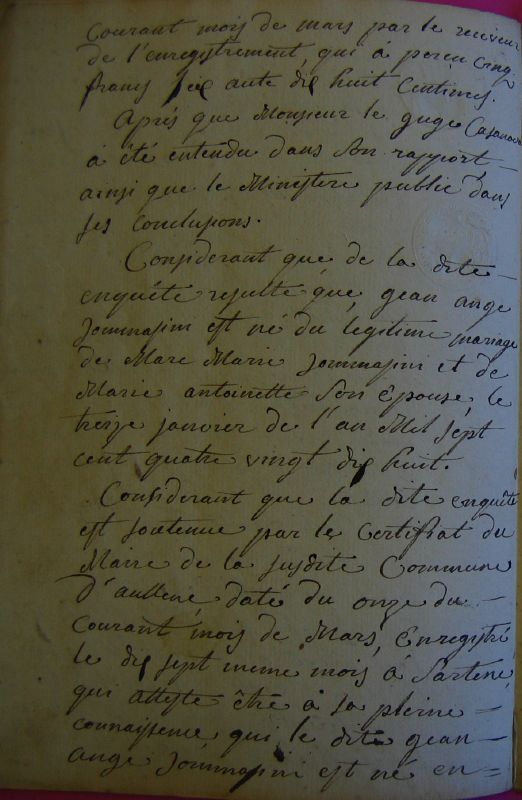 Courant mois de mars par le receveur
de l'enregistrement, qui á perçu Cinq
francs soixante dix huit Centimes.
Aprés que Monsieur le guge Casanova
á été entendu dans son rapport
ainsi que le Ministere public dans
ses Conclusions.
Considerant que de la dite
enquête resulte que gean ange
Tommasini est né du légitime mariage
de Marc Marie Tommasini et de
Marie antoinette son épouse, le
treize janvier de l'an Mil sept
cent quatre vingt dix huit.
Considerant que la dite enquête
est soutenue par le Certificat du
Maire de la susdite Commune
D'aullene daté du onze du
Courant mois de Mars, Enregistré
le dix sept meme mois á Sartene,
qui atteste être á sa pleine =
connaissence qui le dite gean
ange Tommasini est né en =